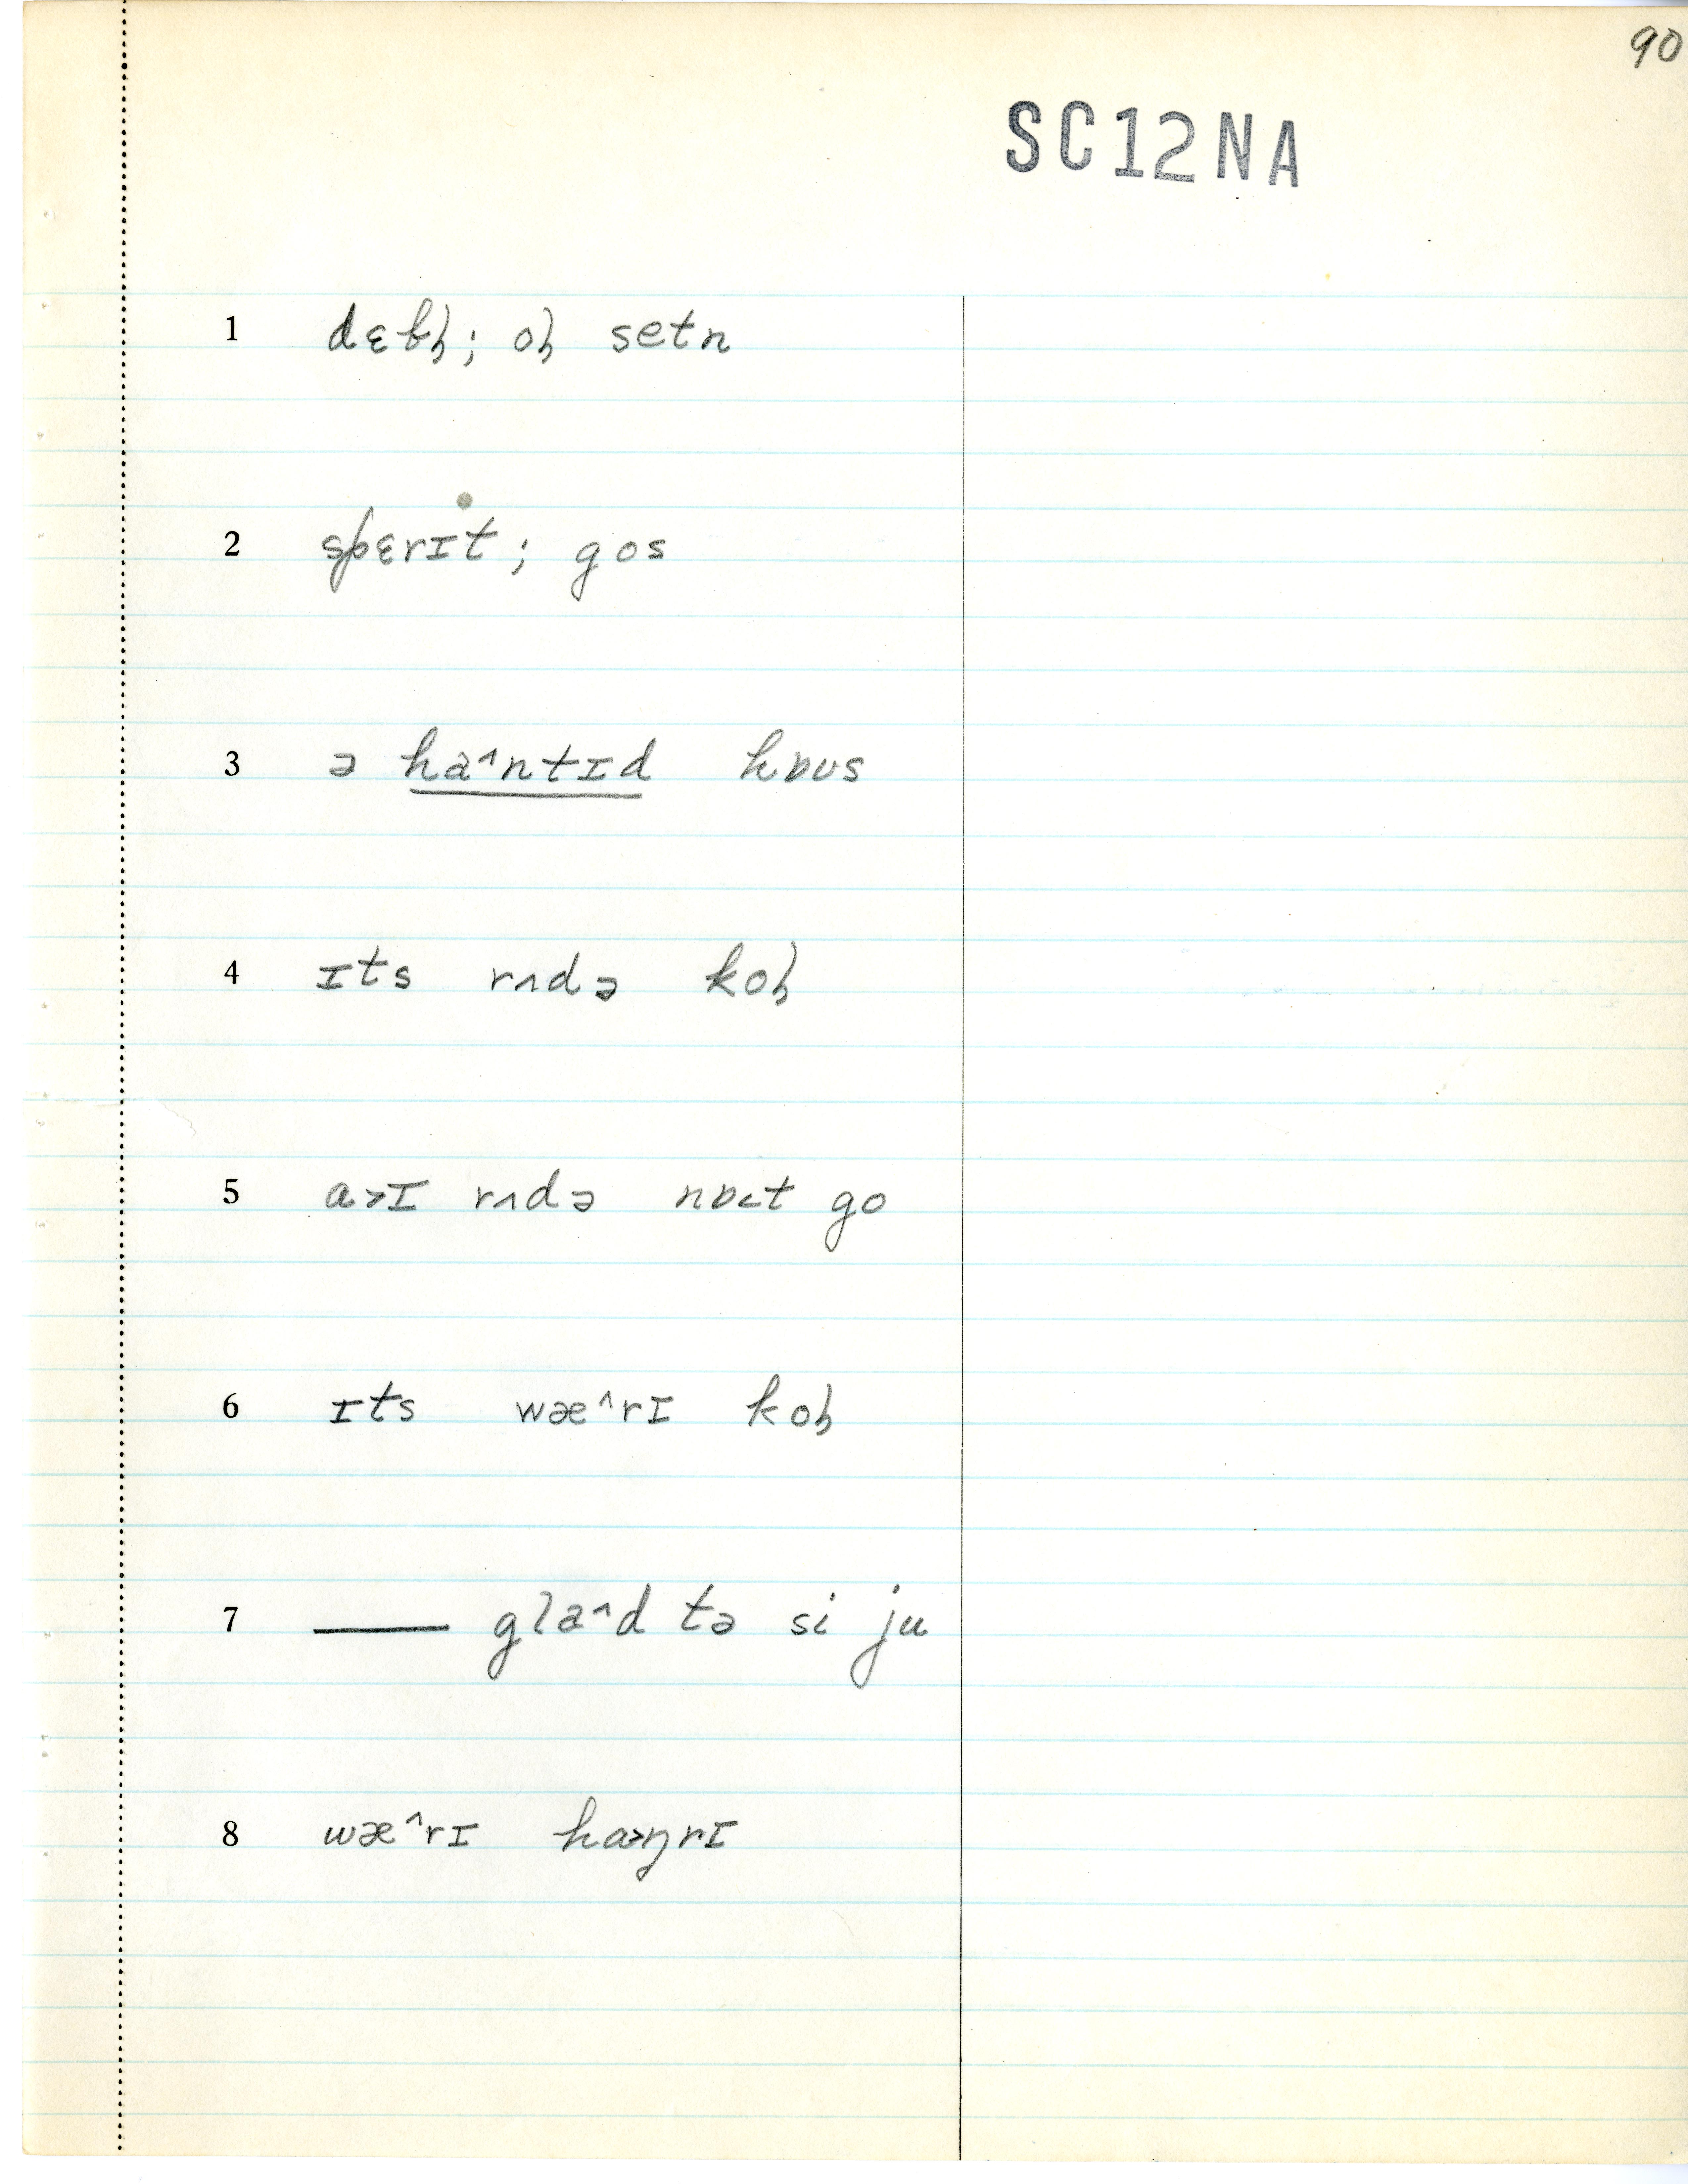 90
SC12NA
1 dɛβɫ; oɫ setn
2 spɛrɪt; gos
3 ə ha^ntɪd hɒʊs
4 ɪts rʌdə koɫ
5 ɑ>ɪ rʌdə nɒ<t go
6 ɪts wæ^rɪ koɫ
7 —— gla^d tə si ju
8 wæ^rɪ hɑ>ŋrɪ